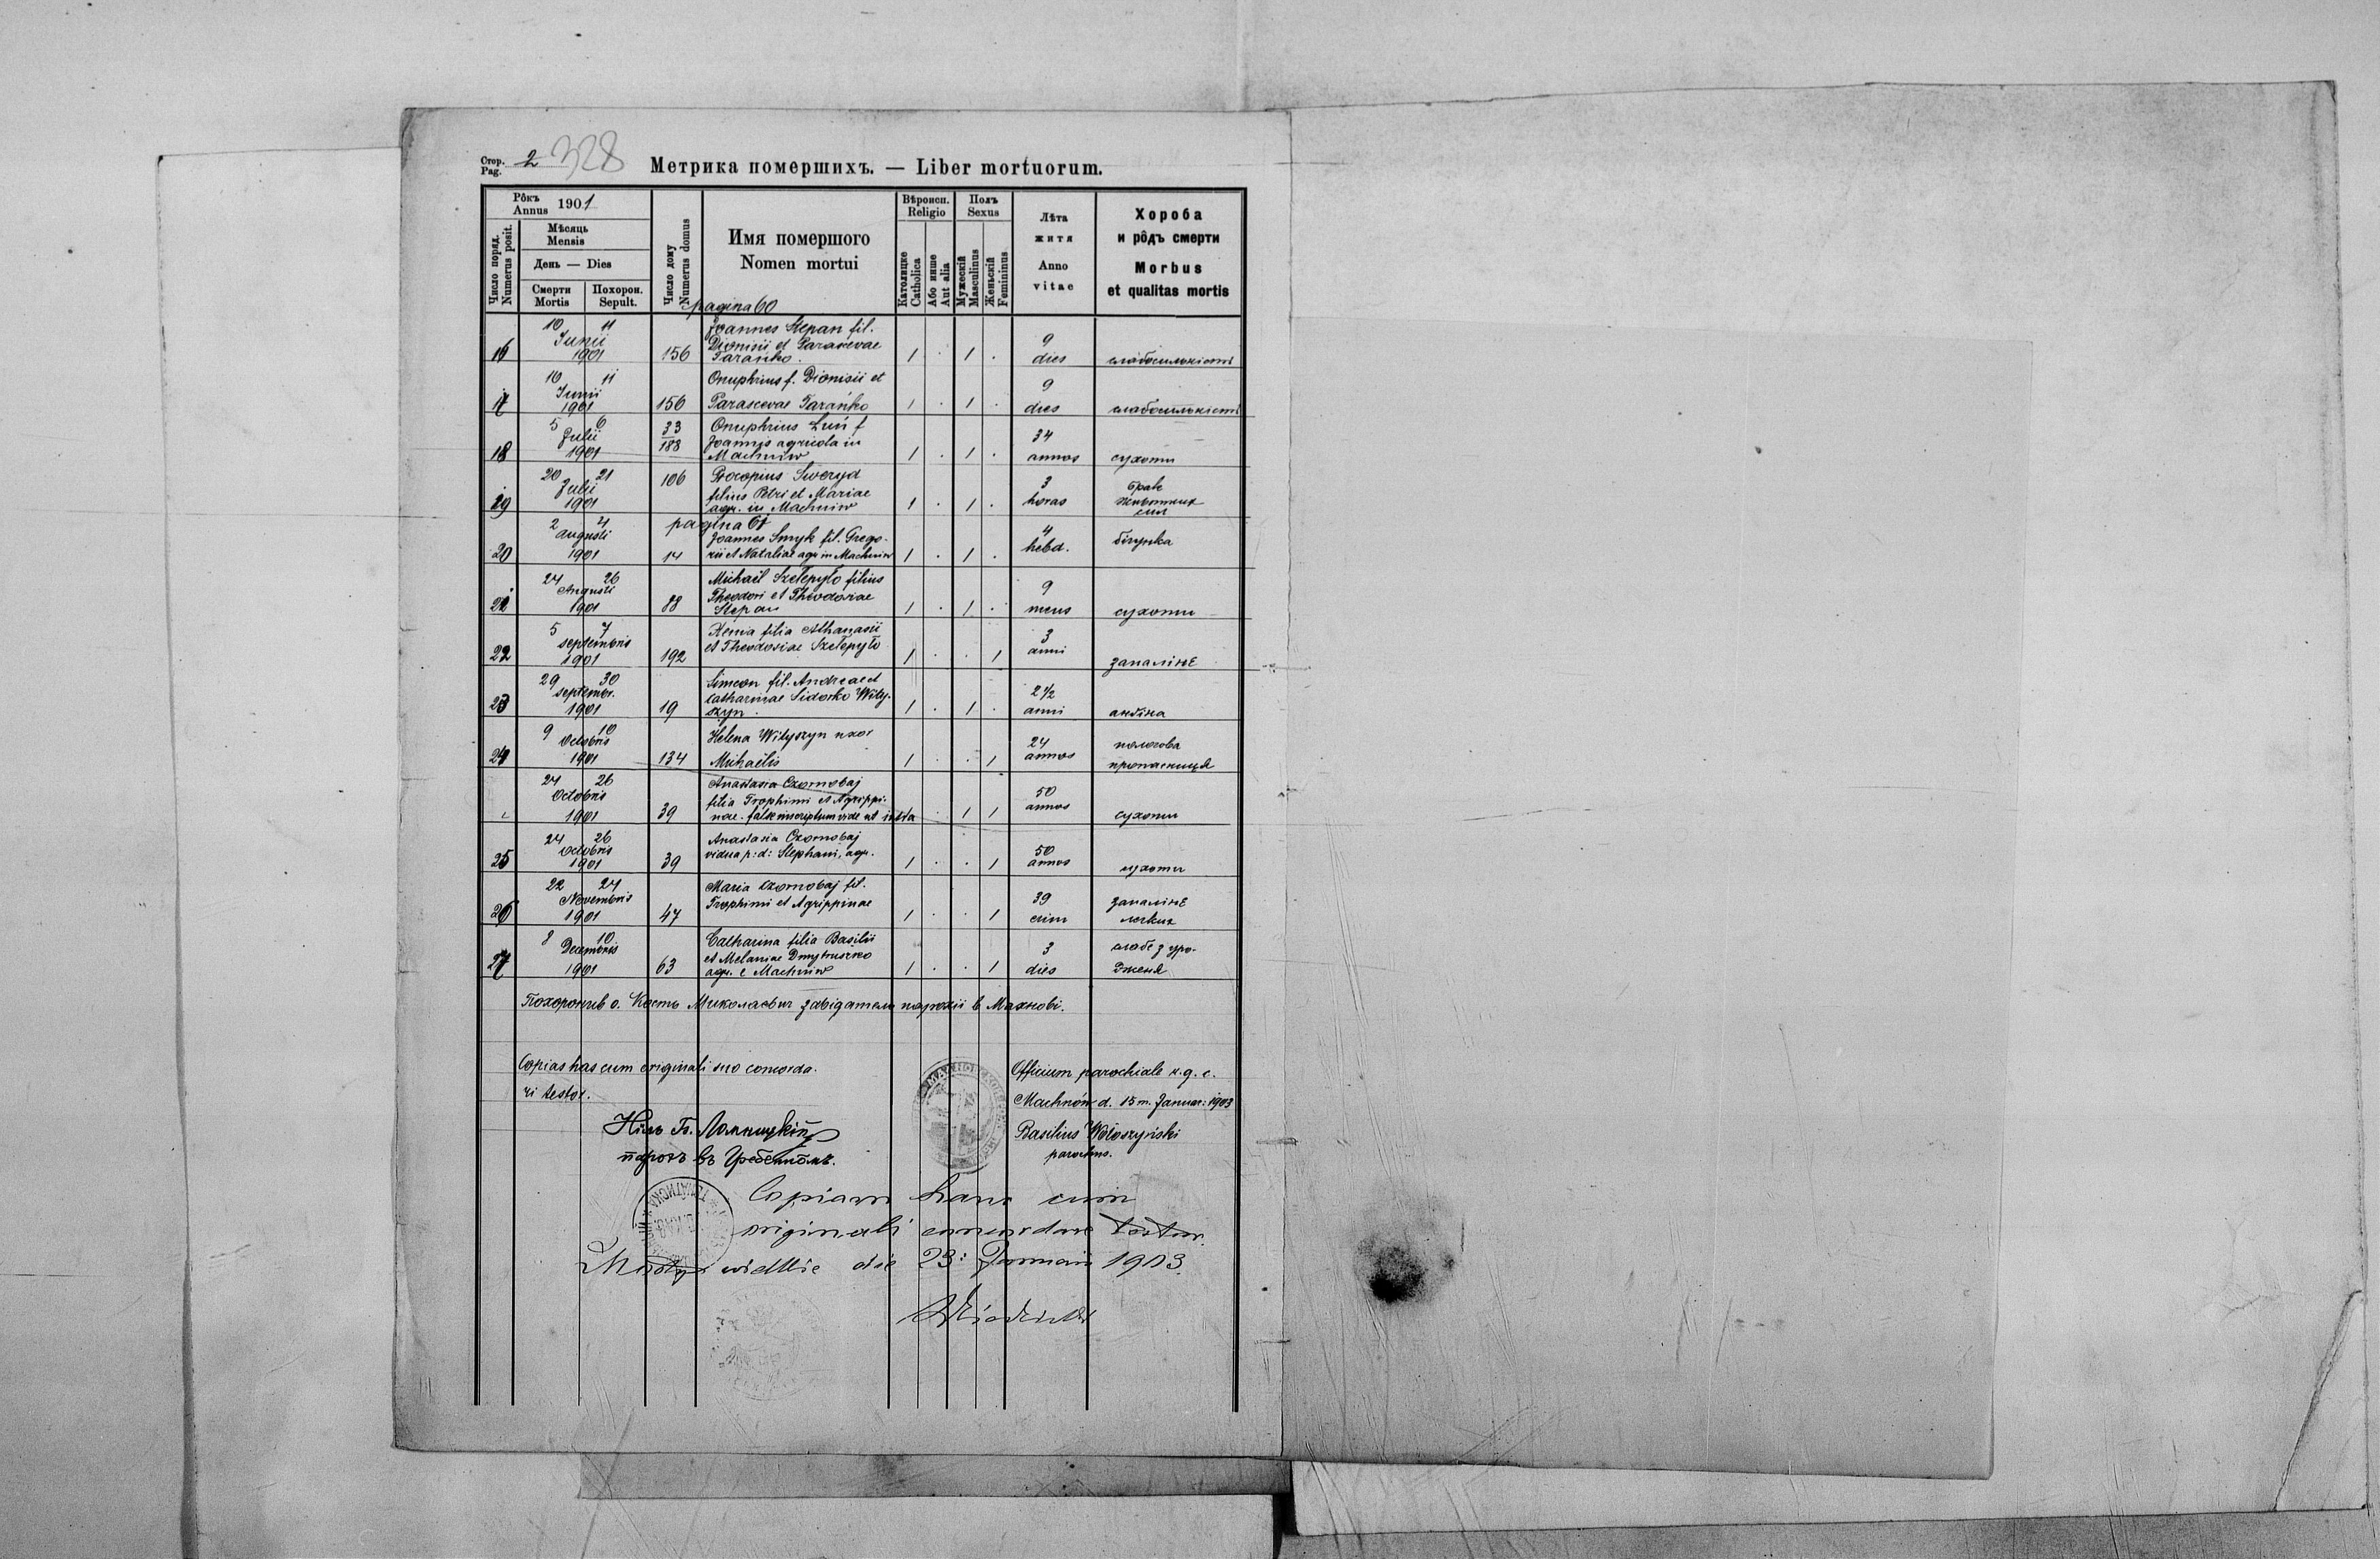 Стор. Pag. 2 328
Метрика помершихъ. — Liber mortuorum.
Рôкъ Annus 1901
Мѣсяць Mensis
День — Dies
Число поряд. Numerus posit.
Смерти Mortis
Похорон. Sepult.
Число дому Numerus domus
Имя помершого
Nomen mortui
Вѣроисп. Religio
Католицке Catholica
Або инше Aut alia
Полъ Sexus
Мужескій Masculinus
Женьскій Femininus
Лѣта житя
Anno vitae
Хороба
и рôдъ смерти
Morbus
et qualitas mortis
pagina 60
16 10 11 Junii 1901 156 Joannes Stepan fil.
Dionisii et Parascevae
Tarańko. 1 . 1 . 9 dies
17 10 11 Junii 1901 156 Onuphrius f. Dionisii et
Parascevae Tarańko 1 . 1 . 9 dies
18 5 6 Julii 1901 33 188 Onuphrius Luń f
Joannis agricola in
Machniw 1 . 1 . 34 annos сухоти
19 20 21 Julii 1901 106 Procopius Sweryd
filius Petri et Mariae
agr. in Machniw 1 . 1 . 3 horas брак
сил
pagina 61
20 2 4 Augusti 1901 14 Joannes Smyk fil. Grego-
rii et Nataliae agr in Machniw 1 . 1 . 4 hebd. бігунка
21 24 26 Augusti 1901 88 Michaël Szełepyło filius
Theodori et Theodosiae
Stepan 1 . 1 . 9 mens сухоти
22 5 7 septembris 1901 192 Xenia filia Athanasii
et Theodosiae Szełepyło 1 . . 1 3 anni запалінє
23 29 30 septembr. 1901 19 Simeon fil. Andreae et
Catharinae Sidorko Wity-
szyn. 1 . 1 . 2 1/2 anni ангіна
24 9 10 Octobris 1901 134 Helena Wityszyn uxor
Michaëlis 1 . . 1 24 annos пологова
пропасниця
24 26 Octobris 1901 39 Anastasia Czornobaj
filia Trophimi et Agrippi-
nae. false inscriptum vide ut infra . 1 1 50 annos сухоти
25 24 26 Octobris 1901 39 Anastasia Czornobaj
vidua p: d: Stephani, agr. 1 . . 1 50 annos сухоти
26 22 24 Novembris 1901 47 Maria Czornobaj fil.
Trophimi et Agrippinae 1 . . 1 39 запалінє
легких
27 8 10 Decembris 1901 63 Catharina filia Basilii
et Melaniae Dmytruszko
agr. e Machniw 1 . . 1 3 dies слабе з уро-
дженя
Похоронив о. Кость Миколаєвич завідатель парохії в Махнові.
Copias has cum originali suo concorda-
ri testor.
Officium parochiale r. g. c.
Machnów d. 15 m. Januar: 1903
Basilius Wołoszyński
parochus.
парохъ въ Гребенномъ.
Copiam hanc cum
originali concordare testor.
die 23: Januarii 1903.